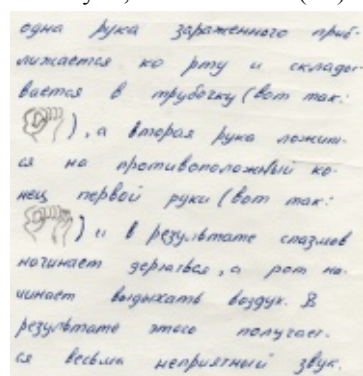 одна рука зараженного приб-
лижается ко рту и склады-
вается в трубочку (вот так:
), а вторая рука ложит-
ся на противоположный ко-
нец первой руки (вот так:
) и в результате спазмов
начинает дергаться, а рот на-
чинает выдыхать воздух. В
результате этого получает-
ся весьма неприятный звук.